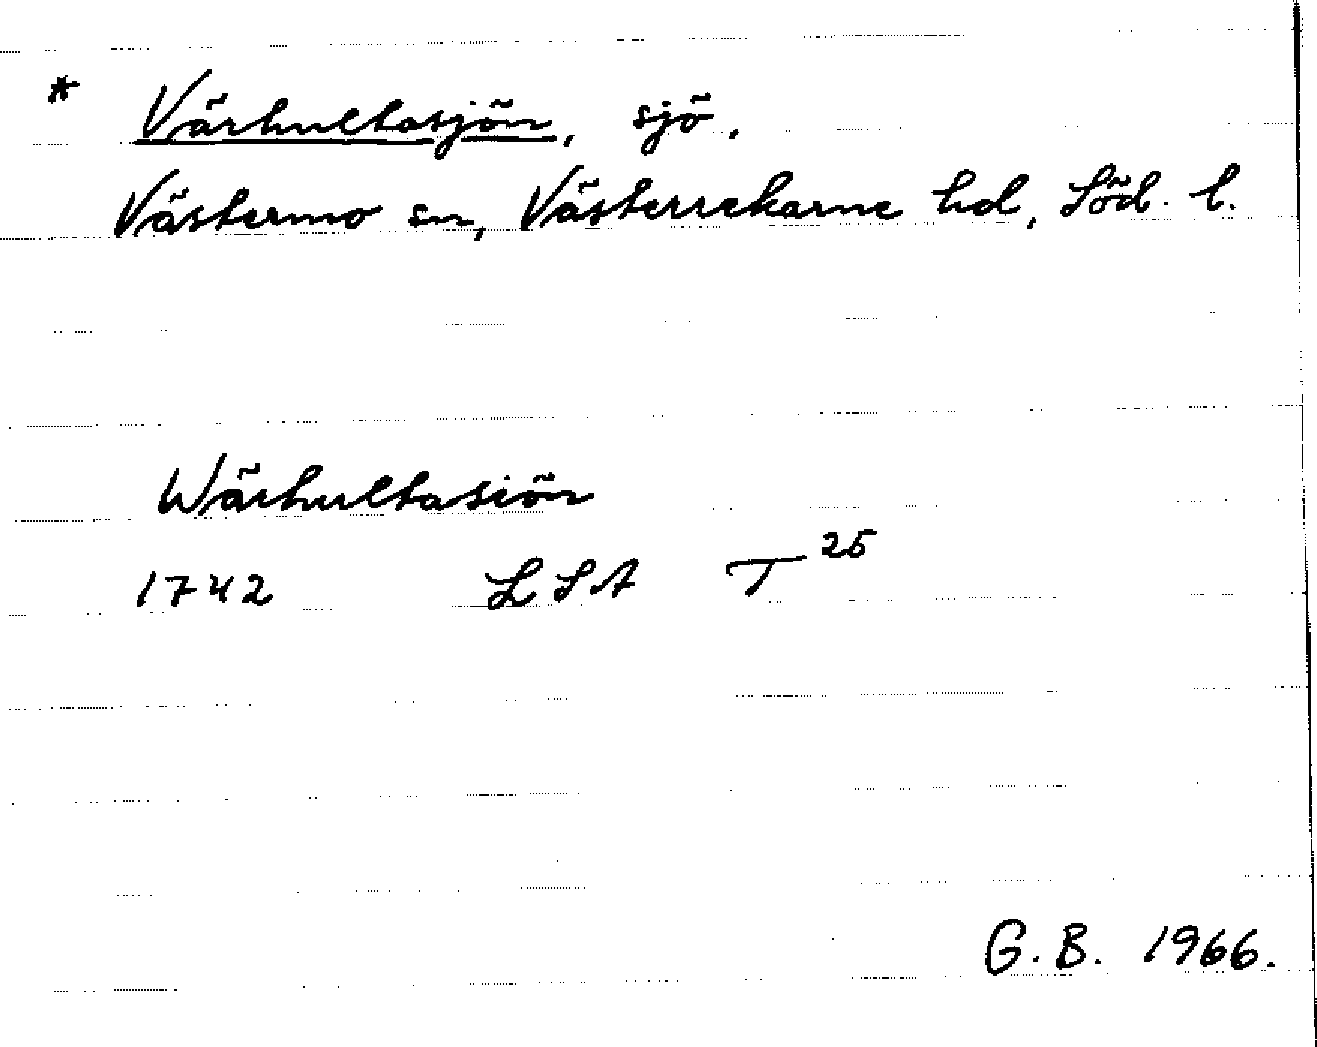 * Värhultasjön, sjö.
Västermo sn, Västerrekarne hd, Söd. l.
Wärhultasiön
1742 LSA T 25
G. B. 1966.